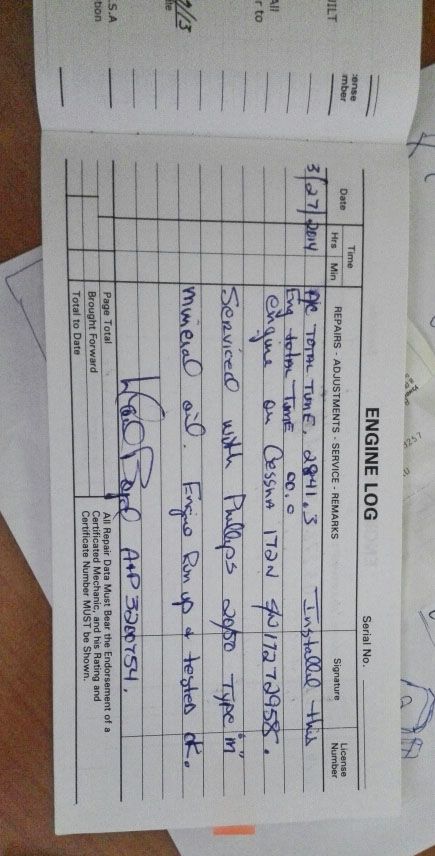 UILT
All
r to
ense
mber
/13
S.A
tion
ENGINE LOG
Serial No.
Date
Time
Hrs
Min
REPAIRS - ADJUSTMENTS - SERVICE - REMARKS
Signature
License
Number
3/27/2014 A/C TOTAL TIME. 2841.3 Installed this
Eng total TIME 00.0
engine on Cessna 172N S/N 17272958.
Serviced with Phillips 20/50 Type "m"
mineral oil. Engine Run up & tested ok.
A+P 3200754.
Page Total
Brought Forward
Total to Date
All Repair Data Must Bear the Endorsement of a
Certificated Mechanic, and his Rating and
Certificate Number MUST be Shown.
3257